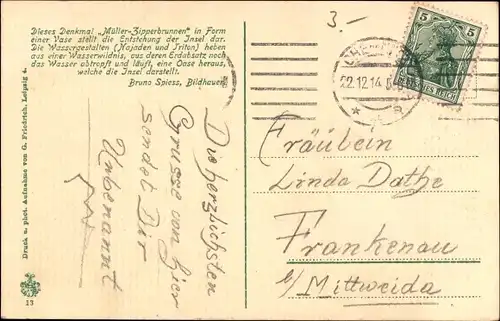 Dieses Denkmal „Müller-Zipperbrunnen" in Form
einer Vase stellt die Entstehung der Insel dar.
Die Wassergestalten (Najaden und Triton) heben
aus einer Wasserwildnis, aus deren Erdabsatz noch
das Wasser abtropft und läuft, eine Oase heraus,
welche die Insel darstellt.
Bruno Spiess, Bildhauer.
Die herzlichsten
Grüsse von hier
sendet Dir
Unbenannt
Druck u. phot. Aufnahme von G. Friedrich, Leipzig 4.
13
3.-
CHEMNITZ
22.12.14
5
5
DEUTSCHES REICH
Fräulein
Linda Dathe
Frankenau
b/ Mittweida